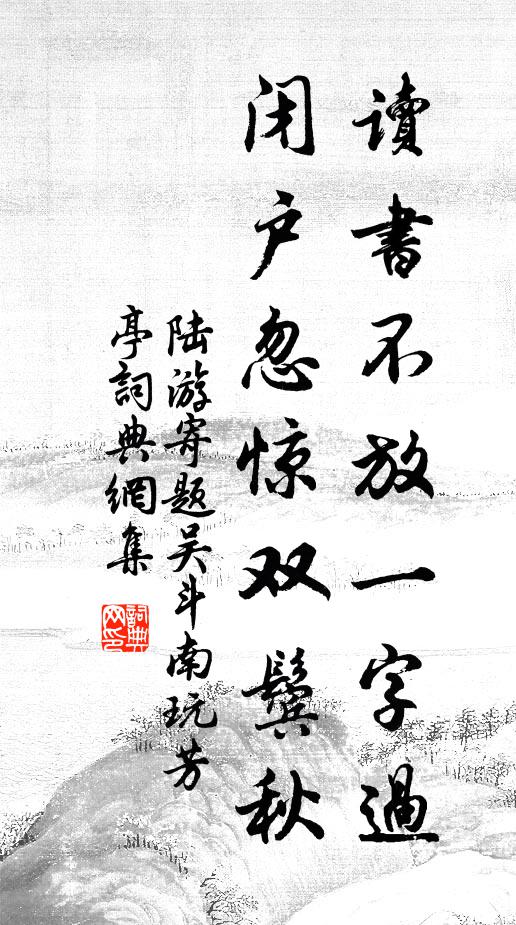 讀書不放一字過
闭户忽惊双鬓秋
陆游寄题吴斗南玩芳
亭詞典網集
詞典
网印